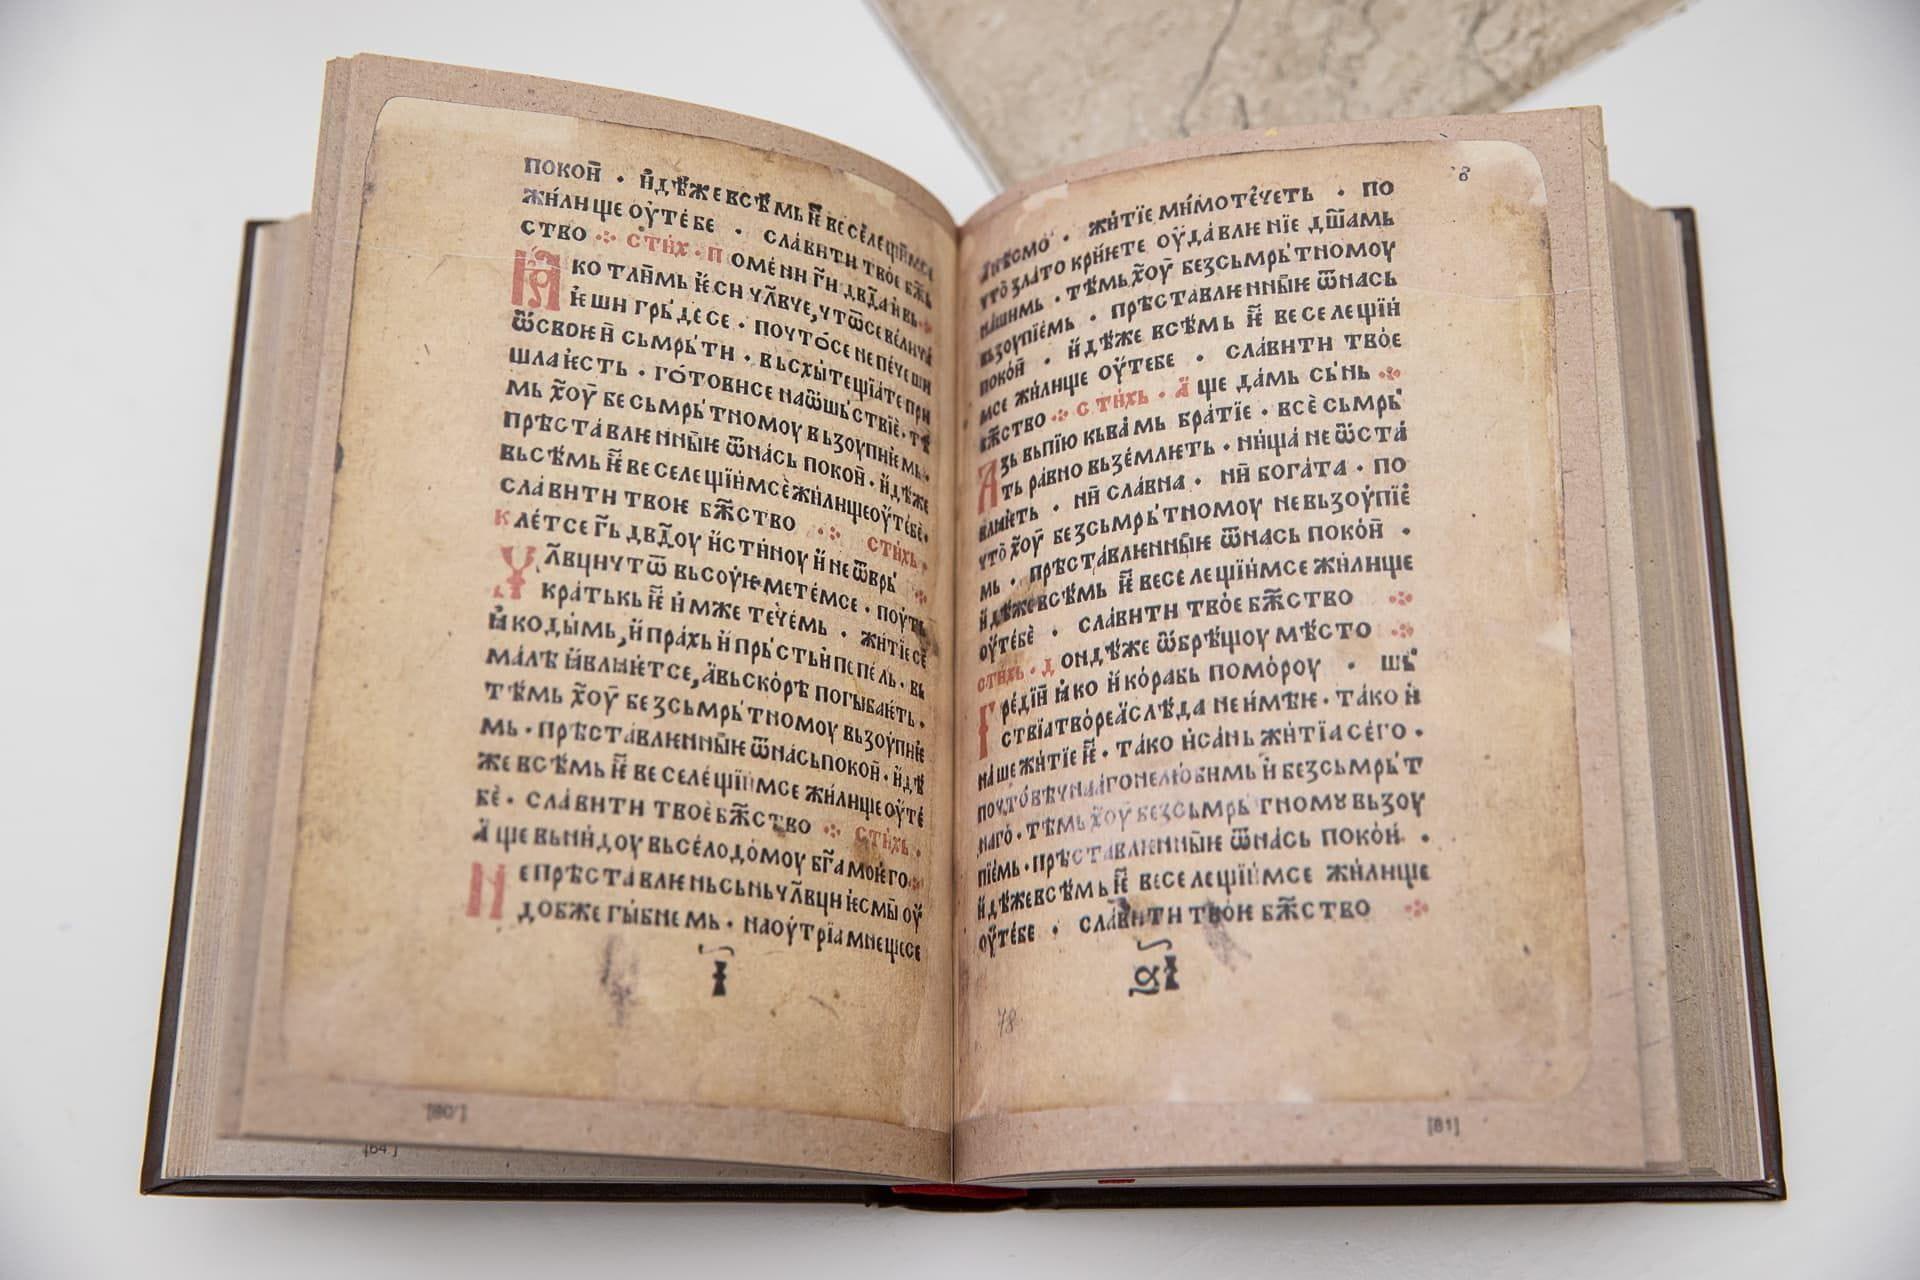 покой · идѣже всѣмь ѥ веселещіимсе
жилище оу тебе · славити твое бж҃ь
ство ·:· стих · Помени г҃и дв҃да и вь ·:·
Ꙗко тлѣнь ѥси чл҃вче, что се велича
ѥши грьде се · почто се не печеши
ѿ своюѥ сьмрьти · вьсхыте щіате при
шла ѥсть · готови се на ѿшьствіе · тѣ
мь х҃оу бесьмрьтномоу вьзоупиѥмь ·
прѣставлѥнныѥ ѿ нась покой · идѣже
вьсѣмь ѥ веселещіимсе жилище оу тебѐ ·
славити твоѥ бж҃ство ·:· стихь ·
Клет се г҃ь дв҃доу истиноу и не ѿврь ·:·
Чл҃вци что вьсоуѥ метемсе · поуть
кратькь ѥ имже течемь · житіе се
ꙗко дымь, и прахь и прьсть и пепель · вь
малѣ ꙗвлꙗѥтсе, а вьскорѣ погыбаѥть ·
тѣмь х҃оу безсьмрьтномоу вьзоупиѥ
мь · прѣставлѥнныѥ ѿ нась покой · идѣ
же всѣмь ѥ веселещіимсе жилище оу те
бѐ · славити твоѐ бж҃ство ·:· стихь ·
Аще вьнидоу вь село домоу бг҃а моѥго ·:·
Не прѣставлѥнь сьнь чл҃вци ѥсмы оу
добже гыбнемь · на оутріа мнещесе
і
ꙗко · житіе мимотечеть · по
что злато криѥте оудавлѥніе дш҃амь
нашимь · тѣмь х҃оу безсьмрьтномоу
вьзоупіемь · прѣставлѥнныѥ ѿ нась
покой · идѣже всѣмь ѥ веселещіи
мсе жилище оу тебе · славити твое
бж҃ство ·:· стихь · Аще дамь сьнь ·:·
Азь вьпію кь вамь братіе · все сьмрь
ть равно вьземлѥть · нища не ѿста
влꙗѥть · ни славна · ни богата · по
что х҃оу безсьмрьтномоу не вьзоупіе
мь · прѣставлѥнныѥ ѿ нась покой ·
идѣже всѣмь ѥ веселещіимсе жилище
оу тебѐ · славити твое бж҃ство ·:·
стихь · Дондѣже ѿбрѣщоу мѣсто ·:·
Гредіи ꙗко и корабь по мороу · шь
ствіа творе а слѣда не имѣѥ · тако и
наше житіе ѥ · тако и сань житіа сего ·
почто вѣчнааго не любимь и безсьмрьт
наго · тѣмь х҃оу безсьмрьтному вьзоу
піемь · прѣставлѥнныѥ ѿ нась покои ·
идѣже всѣмь ѥ веселещіимсе жилище
оу тебе · славити твоѥ бж҃ство ·:·
78
[81]